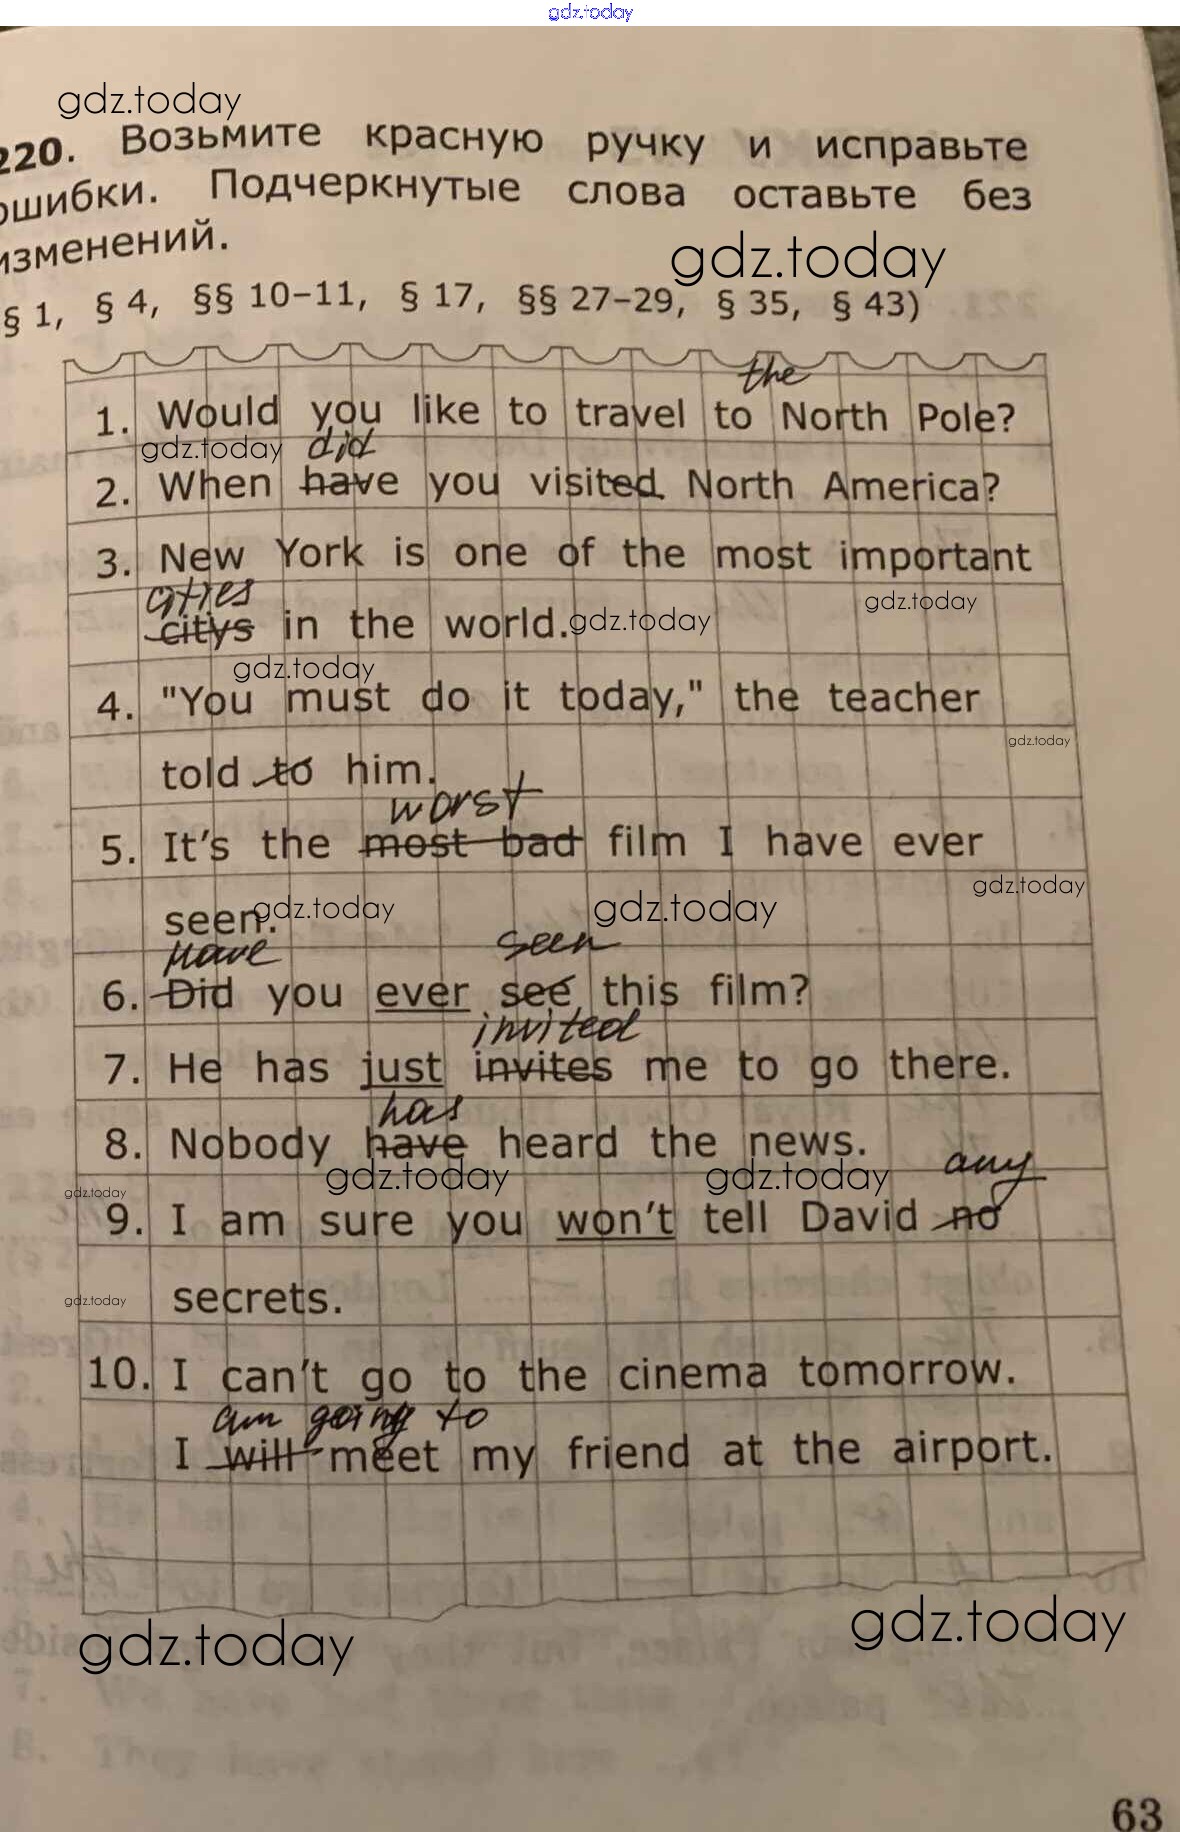 gdz.today
gdz.today
220. Возьмите красную ручку и исправьте
ошибки. Подчеркнутые слова оставьте без
изменений.
gdz.today
§ 1, § 4, §§ 10–11, § 17, §§ 27–29, § 35, § 43)
the
1. Would you like to travel to North Pole?
gdz.today did
2. When have you visited North America?
3. New York is one of the most important
cities gdz.today
citys in the world. gdz.today
gdz.today
4. "You must do it today," the teacher
gdz.today
told to him.
worst
5. It's the most bad film I have ever
gdz.today
seen. gdz.today gdz.today
Have seen
6. Did you ever see this film?
invited
7. He has just invites me to go there.
has
8. Nobody have heard the news.
gdz.today gdz.today any
gdz.today
9. I am sure you won't tell David no
gdz.today
secrets.
10. I can't go to the cinema tomorrow.
am going to
I will meet my friend at the airport.
gdz.today gdz.today
63